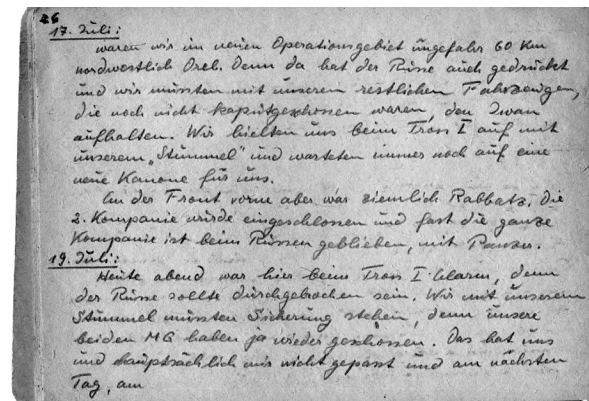 26
17. Juli:
waren wir im neuen Operationsgebiet ungefähr 60 Km
nordwestlich Orel. Denn da hat der Russe auch gedrückt
und wir mussten mit unseren restlichen Fahrzeugen,
die noch nicht kaputtgeschossen waren, den Iwan
aufhalten. Wir hielten uns beim Tross I auf mit
unserem „Stummel" und warteten immer noch auf eine
neue Kanone für uns.
An der Front vorne aber war ziemlich Rabbatz. Die
2. Kompanie wurde eingeschlossen und fast die ganze
Kompanie ist beim Russen geblieben, mit Panzer.
19. Juli:
Heute abend war hier beim Tross I Alarm, denn
der Russe sollte durchgebrochen sein. Wir mit unserem
Stummel mussten Sicherung stehen, denn unsere
beiden MG haben ja wieder geschossen. Das hat uns
und hauptsächlich mir nicht gepasst und am nächsten
Tag, am